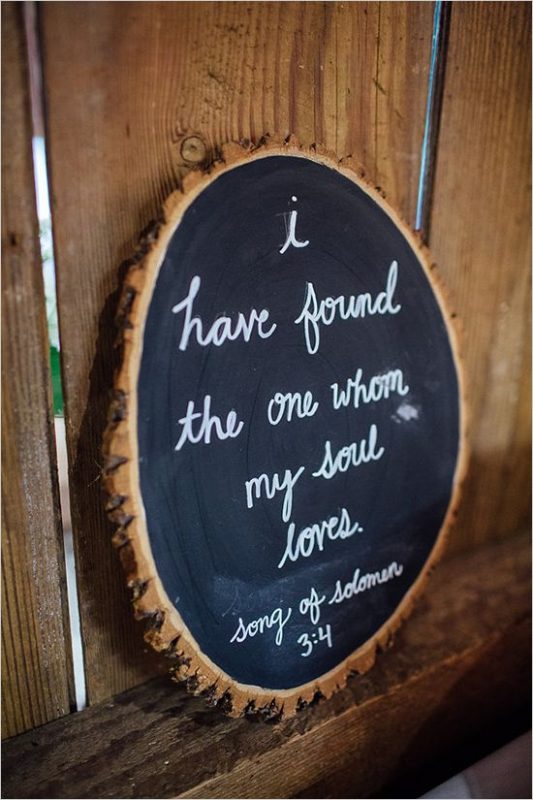 i
have found
the one whom
my soul
loves.
song of solomen
3:4